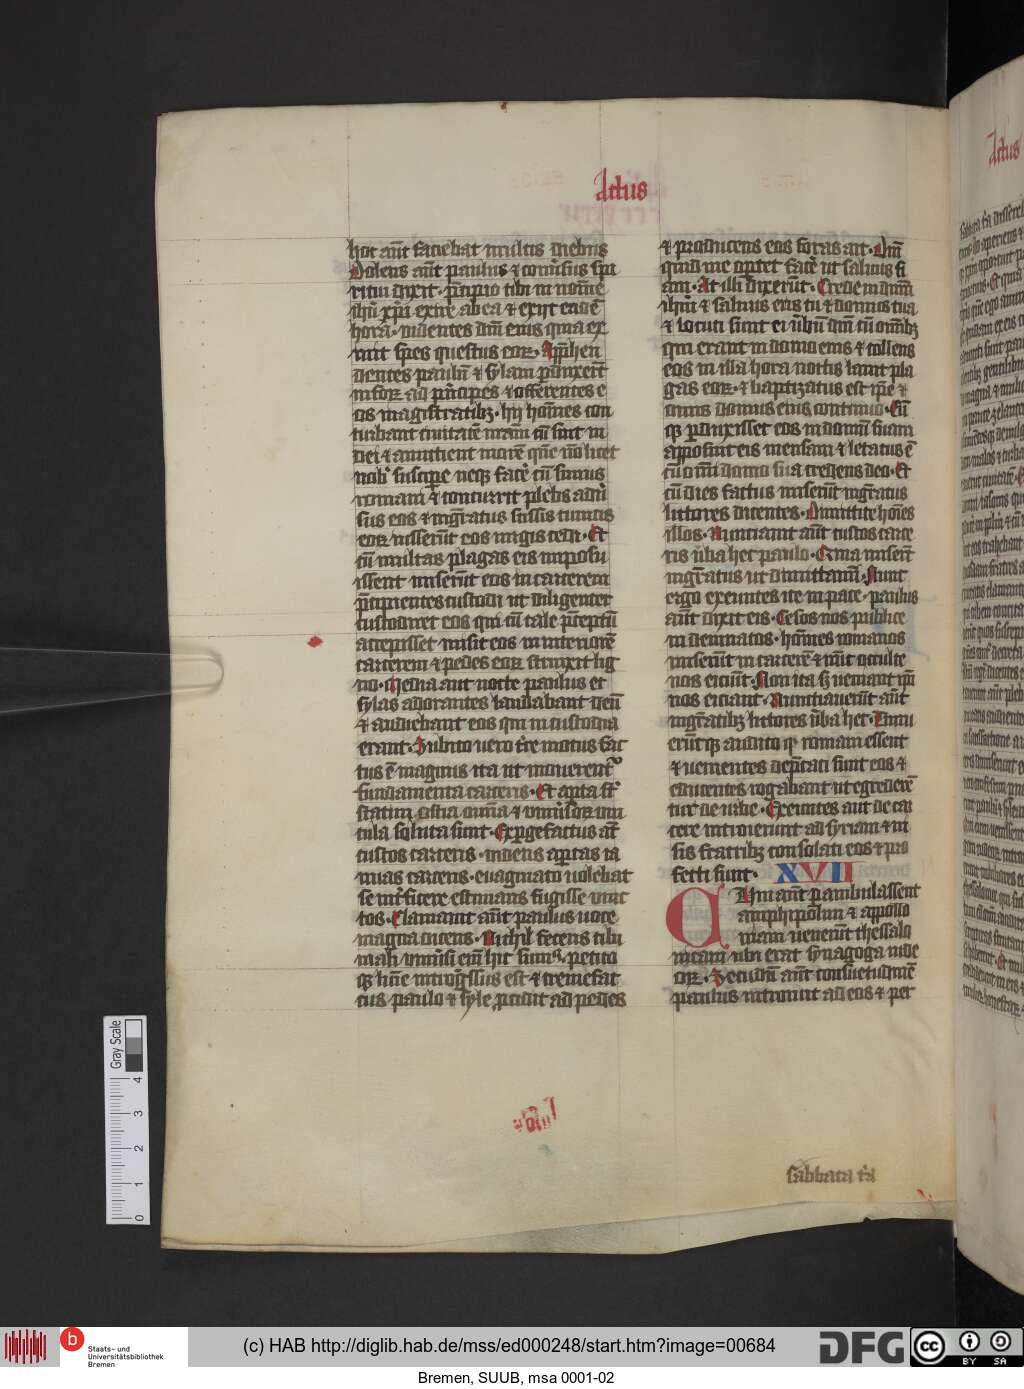 Actus
hoc aūt faciebat multis diebus
Dolens aūt paulus ⁊ conūsus spi
ritui dixit · p̄cipio tibi in noīe
ihū xp̄i exire ab ea ⁊ exijt eadē
hora · videntes dn̄i eius quia ex
iuit spes questus eoꝝ · Appn̄hen
dentes paulū ⁊ sylam pduxerūt
in foꝝ ad p̄ncipes ⁊ offerentes e
os magistratibꝫ · hij hoīnes con
turbant ciuitatē nr̄am cū sint iu
dei ⁊ annūcient morē quē nō licet
nobˢ suscipe neqꝫ facē cū simus
romani ⁊ concurrit plebs adū
sus eos ⁊ mgr̄atus scissis tunicis
eoꝝ iusserūt eos uirgis cedi · Et
cū multas plagas eis imposu
issent miserūt eos in carcerem
p̄cipientes custodi ut diligenter
custodiret eos qui cū tale p̄ceptū
accepisset misit eos in interiorē
carcerem ⁊ pedes eoꝝ strinxit lig
no · Media aut nocte paulus et
sylas adorantes laudabant deū
⁊ audiebant eos qui in custodia
erant · Subito uero t̄re motus fac
tus ē magnus ita ut mouerent᷑
fundamenta carceris · Et apta st᷑
statim ostia om̄ia ⁊ vniūsoꝝ uin
cula soluta sunt · Expgefactus aūt
custos carceris · uidens aptas ia
nuas carceris · euaginato uolebat
se int᷑ficere estimans fugisse uinc
tos · Clamauit aūt paulus uoce
magna dicens · Nichil feceris tibi
mali vniūsi eni hic sumˢ · petito
qꝫ lum̄e introgr̄ssus est ⁊ tremefac
tus paulo ⁊ syle pcidit ad pedes
⁊ producens eos foras ait · Dn̄i
quid me optet facē ut saluus fi
am · At illi dixerūt · Crede in dn̄m
ihm̄ ⁊ saluus eris tu ⁊ domus tua
⁊ locuti sunt ei ūbū dn̄i cū om̄ibꝫ
qui erant in domo eius ⁊ tollens
eos in illa hora noctis lauit pla
gas eoꝝ · ⁊ baptizatus est ip̄e ⁊
omnis domus eius continuo · Cū
qꝫ pduxisset eos in domū suam
apposuit eis mensam ⁊ letatus ē
cū om̄i domo sua credens deo · Et
cū dies factus miserūt mgr̄atus
lictores dicentes · Dimittite hoīes
illos · Nunciauit aūt custos carce
ris ūba hec paulo · Quia miserūt
mgr̄atus ut dimittamī · Nunc
ergo exeuntes ite in pace · paulus
aūt dixit eis · Cesos nos publice
indemnatos · hoīnes romanos
miserūt in carcerē ⁊ nūc occulte
nos eiciūt · Non ita sꝫ ueniant ip̄i
nos eiciant · Nunciauerūt aūt
mgr̄atibꝫ lictores ūba hec · Timu
erūtqꝫ audito qꝫ romani essent
⁊ uenientes dep̄cati sunt eos ⁊
educentes rogabant ut egrederē
tur de urbe · Exeuntes aut de car
cere introierunt ad lydiam ⁊ ui
sis fratribꝫ consolati eos ⁊ pro
fecti sunt · XVII
Cum aūt pambulassent
amphipolim ⁊ appollo
niam uenerūt thessalo
nicam ubi erat synagoga iude
oꝝ · Secundū aūt consuetudinē
paulus introiuit ad eos ⁊ per
sabbata t᷑a
Actus
Gray Scale
4
3
2
1
0
Staats- und
Universitätsbibliothek
Bremen
(c) HAB http://diglib.hab.de/mss/ed000248/start.htm?image=00684
DFG
CC BY SA
Bremen, SUUB, msa 0001-02